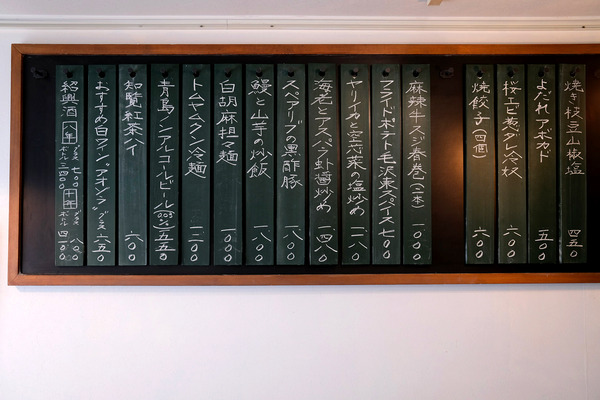 焼き枝豆山椒塩 四五〇
よだれアボカド 五五〇
桜エビ葱ダレ冷奴 六〇〇
焼餃子(四個) 六〇〇
麻辣牛スジ春巻(二本) 一〇〇〇
フライドポテト毛沢東スパイス 七〇〇
ヤリイカと空芯菜の塩炒め 一二八〇
海老とアスパラ蝦醤炒め 一四八〇
スペアリブの黒酢豚 一八〇〇
鰻と山芋の炒飯 一八〇〇
白胡麻担々麺 一〇〇〇
トムヤムクン冷麺 一二〇〇
青島ノンアルコールビール 五五〇
知覧紅茶ハイ 六〇〇
おすすめ白ワイン グラス 六五〇
紹興酒 八年 グラス 七〇〇 ボトル 三四〇〇 十年 グラス 八〇〇 ボトル 四一〇〇